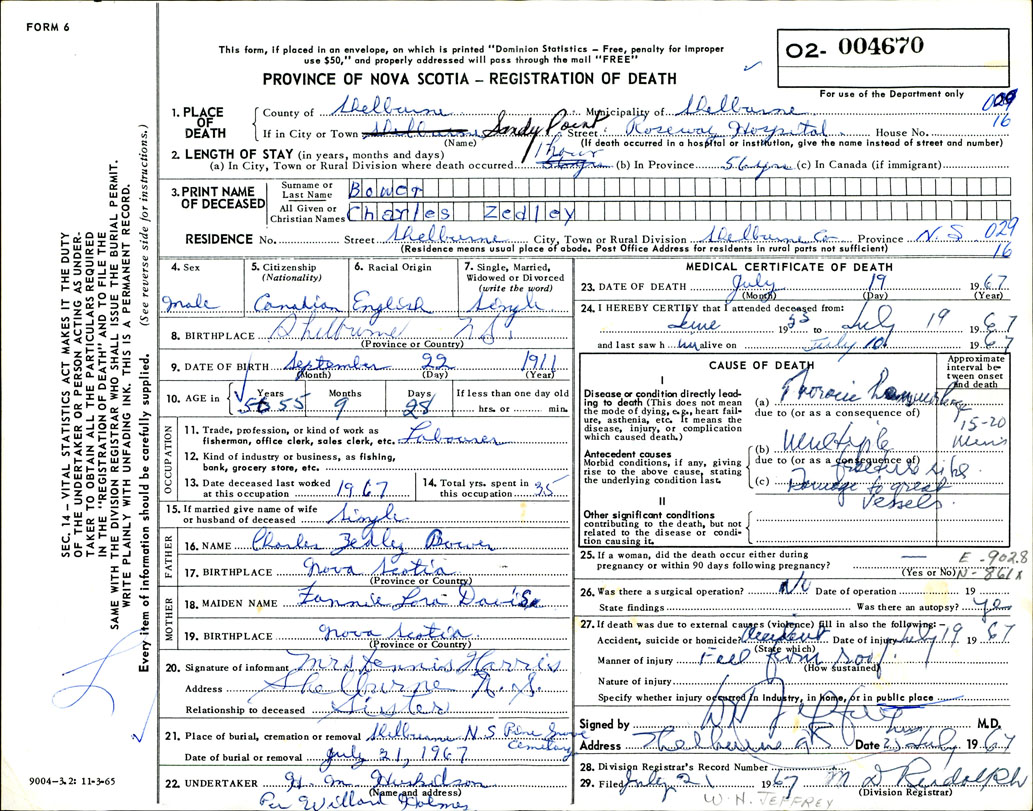 FORM 6
This form, if placed in an envelope, on which is printed "Dominion Statistics – Free, penalty for improper
use $50," and properly addressed will pass through the mail "FREE"
PROVINCE OF NOVA SCOTIA – REGISTRATION OF DEATH
O2- 004670
For use of the Department only
1. PLACE OF DEATH
County of Shelburne Municipality of Shelburne 009
16
If in City or Town Shelburne Sandy Point Street Roseway Hospital House No.
(Name) (If death occurred in a hospital or institution, give the name instead of street and number)
2. LENGTH OF STAY (in years, months and days)
(a) In City, Town or Rural Division where death occurred 1 hour (b) In Province 56 yrs (c) In Canada (if immigrant)
3. PRINT NAME OF DECEASED
Surname or Last Name Bower
All Given or Christian Names Charles Zedley
RESIDENCE No. Street Shelburne City, Town or Rural Division Shelburne Co Province N S 029
(Residence means usual place of abode. Post Office Address for residents in rural parts not sufficient) 16
4. Sex
Male
5. Citizenship (Nationality)
Canadian
6. Racial Origin
English
7. Single, Married, Widowed or Divorced (write the word)
Single
8. BIRTHPLACE Shelburne N.S.
(Province or Country)
9. DATE OF BIRTH September 22 1911
(Month) (Day) (Year)
10. AGE in Years Months Days If less than one day old
56 55 9 28 hrs. or min.
OCCUPATION
11. Trade, profession, or kind of work as fisherman, office clerk, sales clerk, etc. Labourer
12. Kind of industry or business, as fishing, bank, grocery store, etc.
13. Date deceased last worked at this occupation 1967
14. Total yrs. spent in this occupation 35
15. If married give name of wife or husband of deceased Single
FATHER
16. NAME Charles Zedley Bower
17. BIRTHPLACE Nova Scotia
(Province or Country)
MOTHER
18. MAIDEN NAME Fannie Davis
19. BIRTHPLACE Nova Scotia
(Province or Country)
20. Signature of informant Mrs Dennis Harris
Address Shelburne N.S.
Relationship to deceased Sister
21. Place of burial, cremation or removal Shelburne N.S Pine Grove Cemetery
Date of burial or removal July 21, 1967
22. UNDERTAKER H. M. Huskilson
(Name and address)
Per Willard Holmes
MEDICAL CERTIFICATE OF DEATH
23. DATE OF DEATH July 19 1967
(Month) (Day) (Year)
24. I HEREBY CERTIFY that I attended deceased from:
June 1955 to July 19 1967
and last saw h im alive on July 10 1967
CAUSE OF DEATH
Approximate interval between onset and death
I
Disease or condition directly leading to death (This does not mean the mode of dying, e.g., heart failure, asthenia, etc. It means the disease, injury, or complication which caused death.)
(a) Thoracic Hemorrhage
due to (or as a consequence of) 15-20 mins
Antecedent causes
Morbid conditions, if any, giving rise to the above cause, stating the underlying condition last.
(b) Multiple
due to (or as a consequence of)
(c) Damage to great
Vessels
II
Other significant conditions
contributing to the death, but not related to the disease or condition causing it.
25. If a woman, did the death occur either during pregnancy or within 90 days following pregnancy? —
(Yes or No)
E-902.8
N-861X
26. Was there a surgical operation? No Date of operation 19
State findings Was there an autopsy? yes
27. If death was due to external causes (violence) fill in also the following:–
Accident, suicide or homicide? Accident Date of injury July 19 1967
(State which)
Manner of injury Fell from roof
(How sustained)
Nature of injury
Specify whether injury occurred in industry, in home, or in public place
Signed by W H Jeffrey M.D.
Address Shelburne NS Date 23 July 1967
28. Division Registrar's Record Number
29. Filed July 21 1967 M D Rudolph
(Division Registrar)
W. H. JEFFREY
SEC. 14 – VITAL STATISTICS ACT MAKES IT THE DUTY
OF THE UNDERTAKER OR PERSON ACTING AS UNDER-
TAKER TO OBTAIN ALL THE PARTICULARS REQUIRED
IN THE "REGISTRATION OF DEATH" AND TO FILE THE
SAME WITH THE DIVISION REGISTRAR WHO SHALL ISSUE THE BURIAL PERMIT.
WRITE PLAINLY WITH UNFADING INK. THIS IS A PERMANENT RECORD.
Every item of information should be carefully supplied. (See reverse side for instructions.)
9004-3.2: 11-3-65